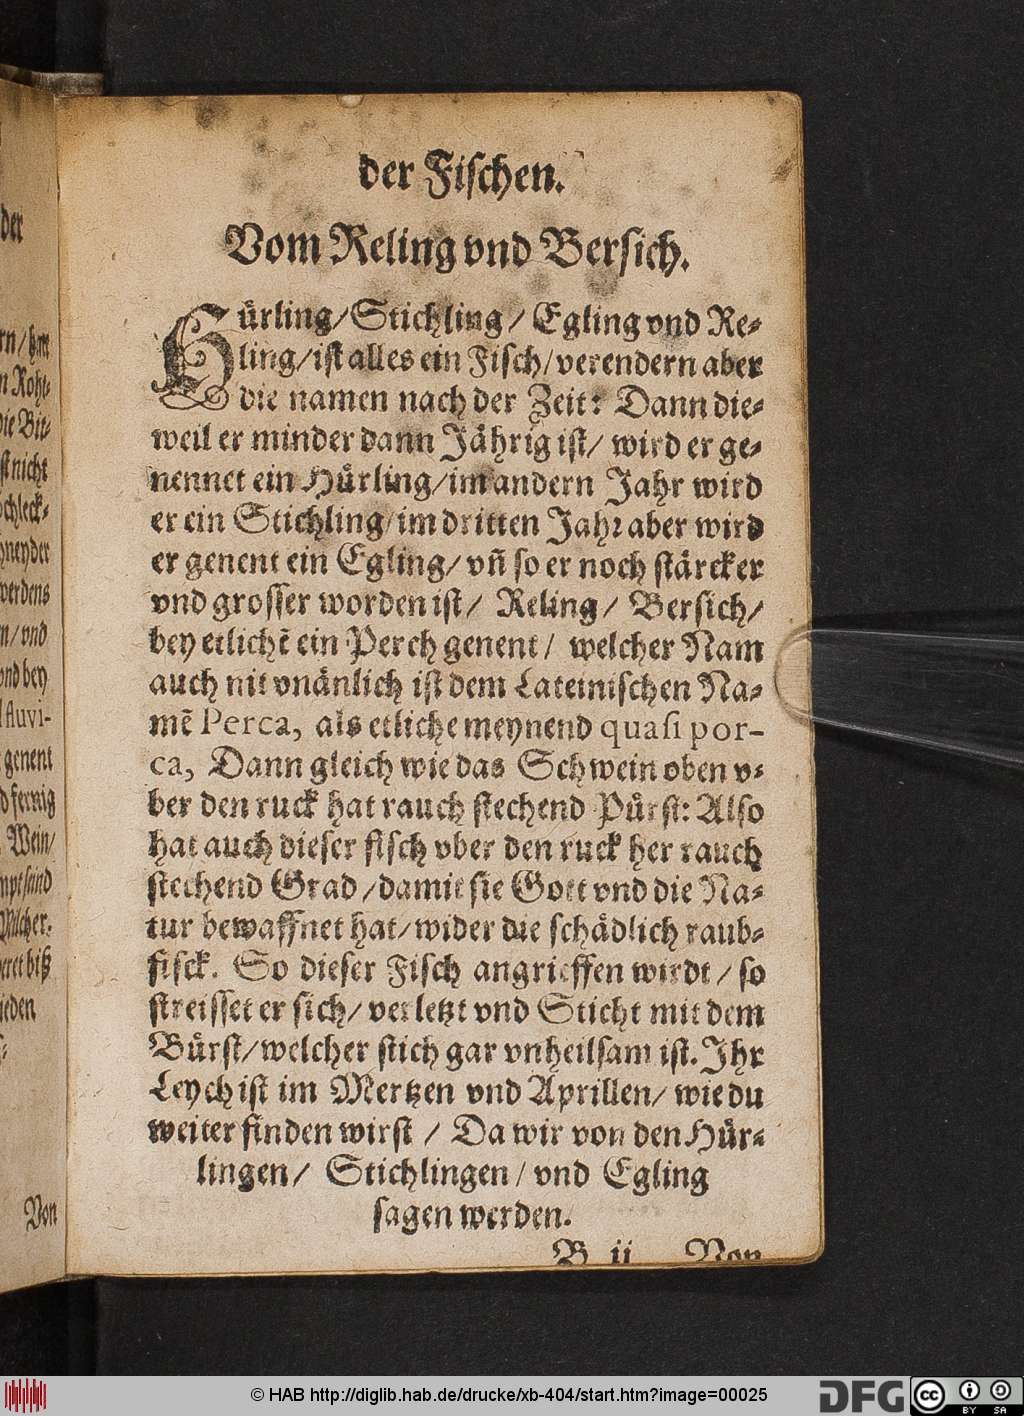 der Fischen.
Vom Reling vnd Bersich.
Hürling/ Stichling/ Egling vnd Re-
ling/ ist alles ein Fisch/ verendern aber
die namen nach der Zeit: Dann die-
weil er minder dann Jährig ist/ wird er ge-
nennet ein Hürling/ im andern Jahr wird
er ein Stichling/ im dritten Jahr aber wird
er genent ein Egling/ vñ so er noch stärcker
vnd grosser worden ist/ Reling/ Bersich/
bey etlichẽ ein Perch genent/ welcher Nam
auch nit vnänlich ist dem Lateinischen Na-
mẽ Perca, als etliche meynend quasi por-
ca, Dann gleich wie das Schwein oben v-
ber den ruck hat rauch stechend Pürst: Also
hat auch dieser fisch vber den ruck her rauch
stechend Grad/ damit sie Gott vnd die Na-
tur bewaffnet hat/ wider die schädlich raub-
fisck. So dieser Fisch angrieffen wirdt/ so
streisset er sich/ verletzt vnd Sticht mit dem
Bürst/ welcher stich gar vnheilsam ist. Ihr
Leych ist im Mertzen vnd Aprillen/ wie du
weiter finden wirst/ Da wir von den Hür-
lingen/ Stichlingen/ vnd Egling
sagen werden.
B ij Von
der
n Roht-
die Bit-
st nicht
schleck-
hneyder
werdens
n/ vnd
vnd bey
fluvi-
genent
Wein/
eret biß
ieden
Von
© HAB http://diglib.hab.de/drucke/xb-404/start.htm?image=00025
DFG
cc
BY SA